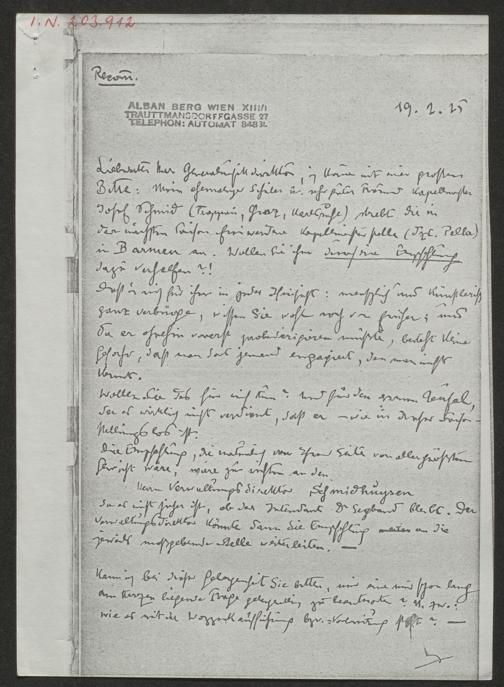 I.N. 203.912
Recom.
ALBAN BERG WIEN XIII/1
TRAUTTMANSDORFFGASSE 27
TELEPHON: AUTOMAT 84831.
19. 2. 25
Liebwerter Herr Generalmusikdirektor, ich komme mit einer großen
Bitte: Mein ehemaliger Schüler u. sehr guter Freund Kapellmeister
Josef Schmid (Troppau, Graz, Karlsruhe) strebt die in
der nächsten Saison freiwerdende Kapellmeisterstelle (Stelle)
in Barmen an. Wollen Sie ihm durch eine Empfehlung
dazu verhelfen?!
Daß ich mich für ihn in jeder Hinsicht: menschlich und künstlerisch
ganz verbürge, wissen Sie wohl noch von früher; und
da er ohnehin vorerst probedirigieren müßte, besteht keine
Gefahr, daß man dort jemand engagiert, den man nicht
kennt.
Wollen Sie das für mich tun? Und für den armen Teufel,
der es wirklich nicht verdient, daß er – wie in dieser Saison –
stellungslos ist.
Die Empfehlung, die natürlich von Ihrer Seite von allergrößtem
Gewicht wäre, wäre zu richten an den
Herrn Verwaltungsdirektor Schmidhuysen
da es nicht sicher ist, ob der Intendant Dr bleibt. Der
Verwaltungsdirektor könnte dann die Empfehlung an die
jeweils maßgebende Stelle weiterleiten. —
Kann ich bei dieser Gelegenheit Sie bitten, mir eine mir schon lang
am Herzen liegende Frage gelegentlich zu beantworten? U. zw.:
wie es mit der Wozzeckaufführung bzw. Vorbereitung steht? —